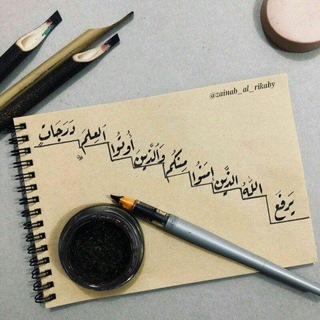 @zainab_al_rikaby
يَرفَعِ اللهُ الذَّينَ آمَنُوا مِنكُم وَالَّذينَ أُوتُوا العِلمَ دَرَجَاتٍ